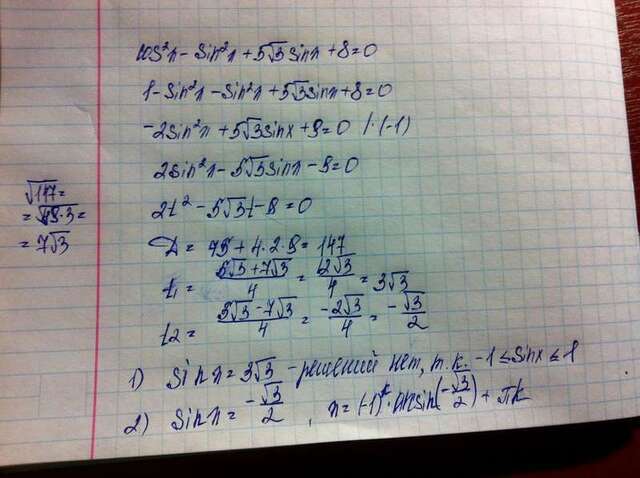 cos²x - sin²x + 5√3 sinx + 8 = 0
1 - sin²x - sin²x + 5√3 sinx + 8 = 0
-2sin²x + 5√3 sinx + 9 = 0 /·(-1)
2sin²x - 5√3 sinx - 9 = 0
2t² - 5√3t - 9 = 0
D = 75 + 4·2·9 = 147
t1 = (5√3 + 7√3)/4 = 12√3/4 = 3√3
t2 = (5√3 - 7√3)/4 = -2√3/4 = -√3/2
1) sinx = 3√3 - решений нет, т.к. -1 ≤ sinx ≤ 1
2) sinx = -√3/2, x = (-1)^k · arcsin(-√3/2) + πk
√147 =
= √49·3 =
= 7√3